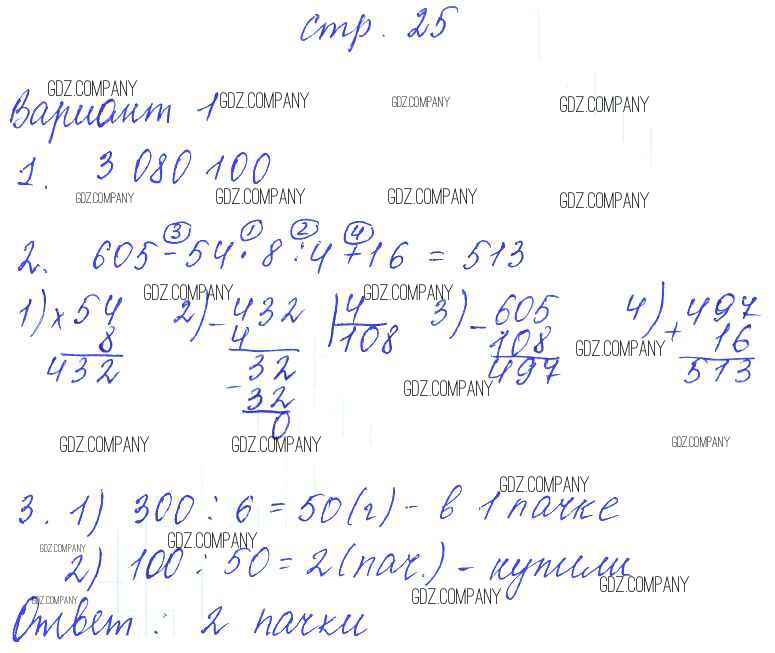 стр. 25
GDZ.COMPANY GDZ.COMPANY GDZ.COMPANY GDZ.COMPANY
Вариант 1
1. 3 080 100
GDZ.COMPANY GDZ.COMPANY GDZ.COMPANY GDZ.COMPANY
③ ① ② ④
2. 605 - 54 · 8 : 4 + 16 = 513
GDZ.COMPANY GDZ.COMPANY
1) × 54 2) - 432 | 4 3) - 605 4) + 497
8 4 108 108 16
432 32 497 513
GDZ.COMPANY
- 32
GDZ.COMPANY
0
GDZ.COMPANY GDZ.COMPANY GDZ.COMPANY
GDZ.COMPANY
3. 1) 300 : 6 = 50 (г) - в 1 пачке
GDZ.COMPANY GDZ.COMPANY
2) 100 : 50 = 2 (пач.) - купили
GDZ.COMPANY GDZ.COMPANY GDZ.COMPANY
Ответ : 2 пачки